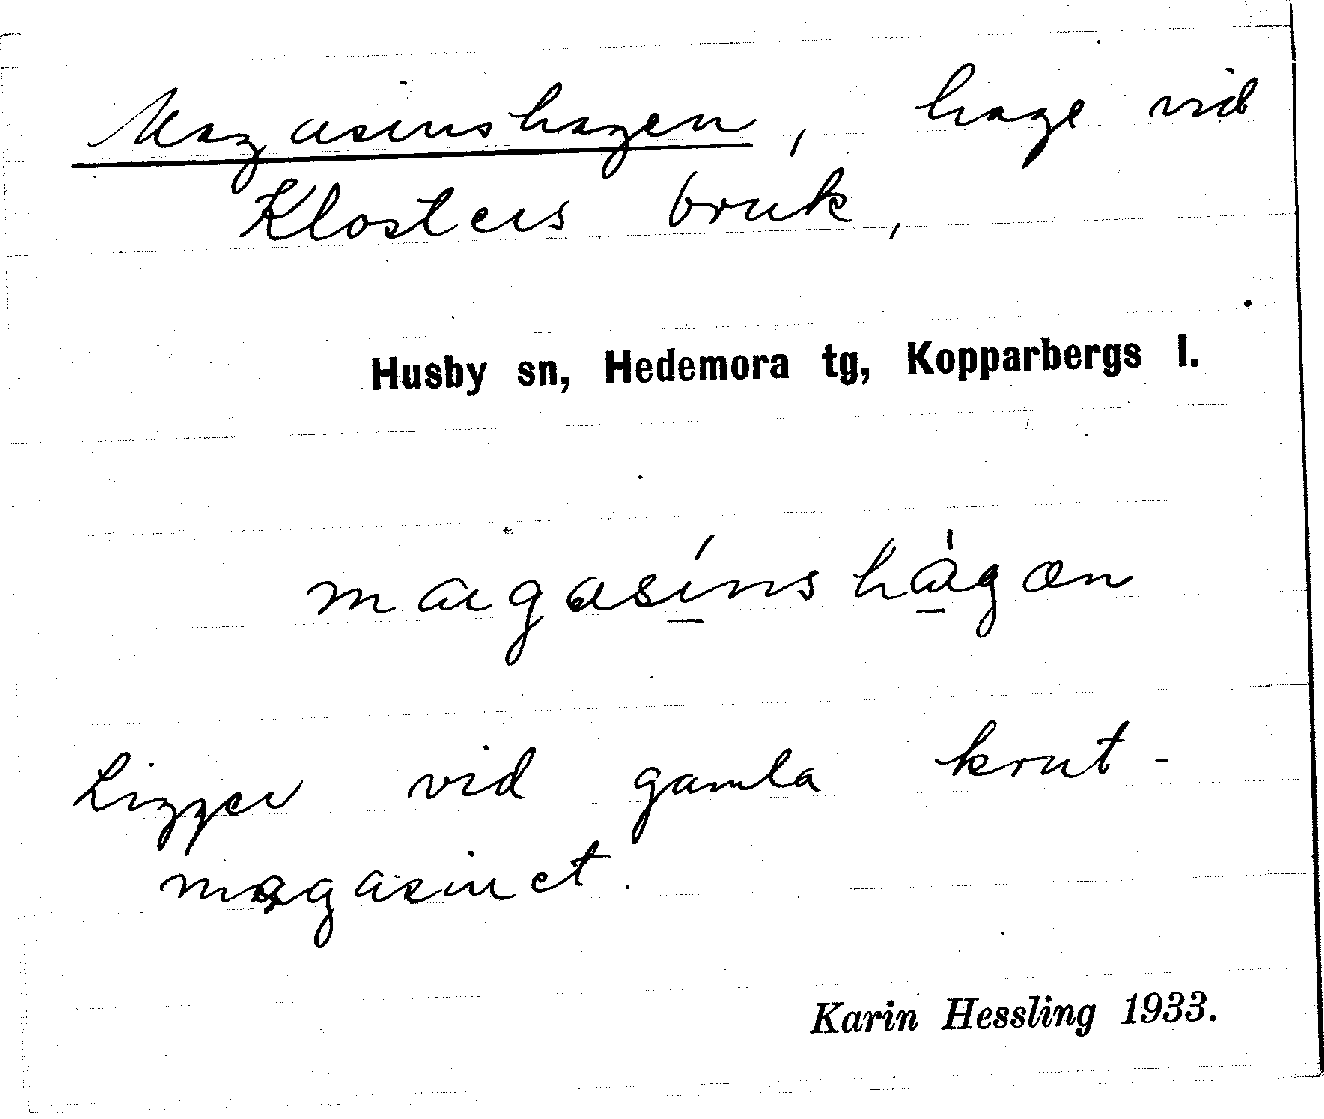 Magasinshagen, hage vid
Klosters bruk,
Husby sn, Hedemora tg, Kopparbergs l.
magasínshágæn
Ligger vid gamla krut-
magasinet.
Karin Hessling 1933.